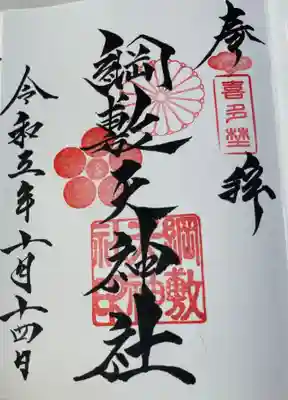 奉拝
喜多埜
綱敷天神社
綱敷天神社印
令和五年十月十四日